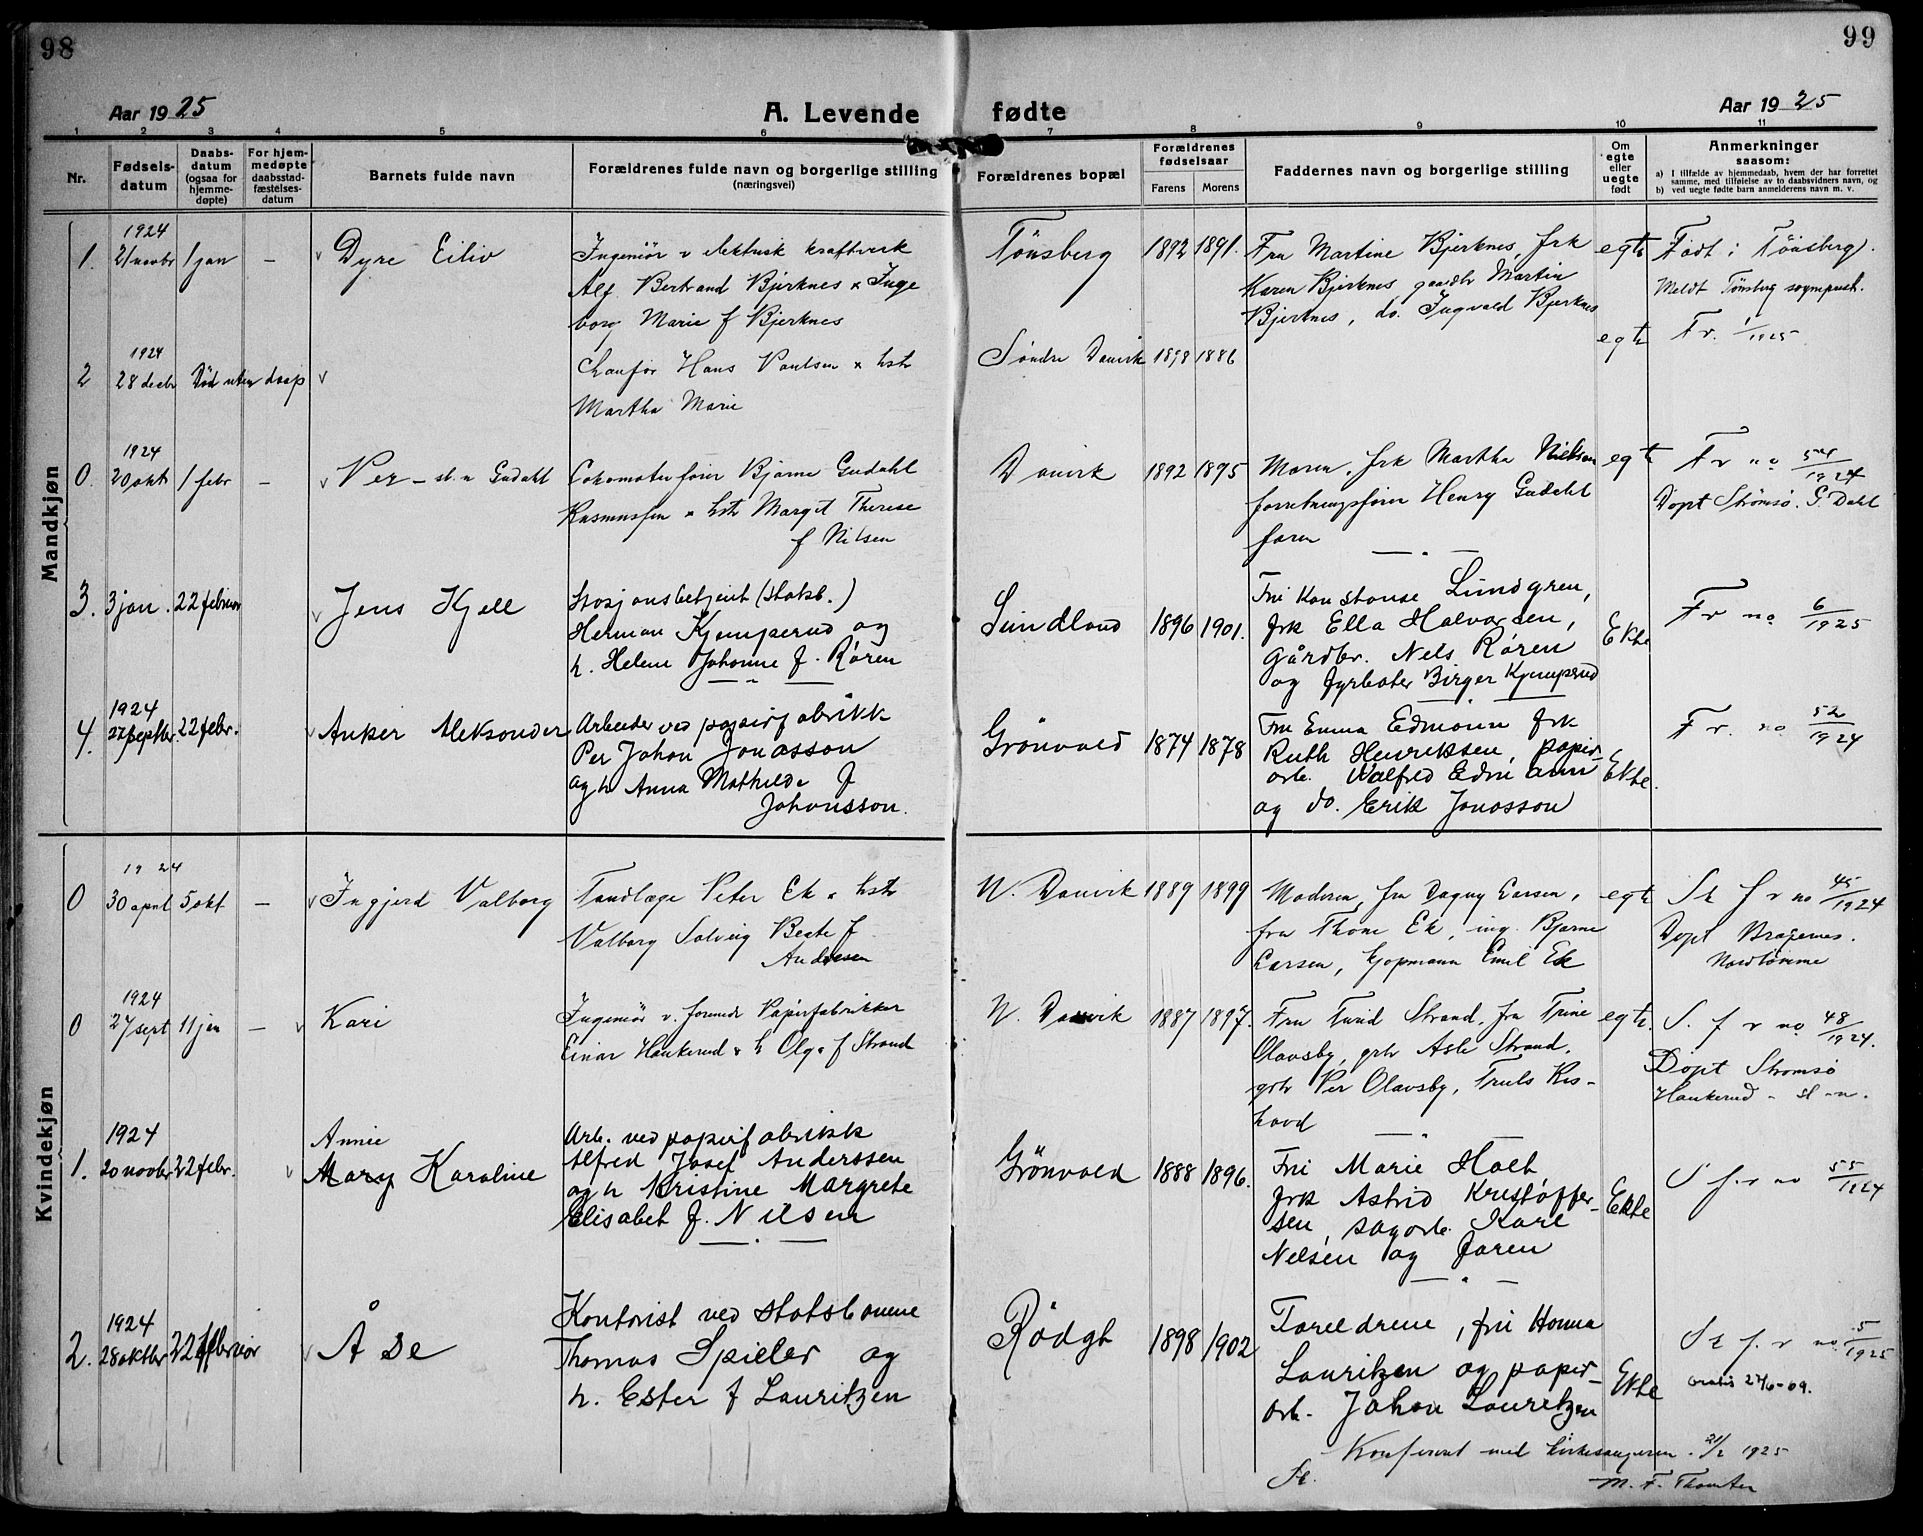 98
99
Aar 1925
A. Levende fødte
Aar 1925
1 2 3 4 5 6 7 8 9 10 11
Nr.
Fødsels-
datum
Daabs-
datum
(ogsaa for
hjemme-
døpte)
For hjem-
medøpte
daabsstad-
fæstelses-
datum
Barnets fulde navn
Forældrenes fulde navn og borgerlige stilling
(næringsvei)
Forældrenes bopæl
Forældrenes
fødselsaar
Farens Morens
Faddernes navn og borgerlige stilling
Om
egte
eller
uegte
født
Anmerkninger
saasom:
a) I tilfælde av hjemmedaab, hvem der har forrettet
samme, med tilføielse av to daabsvidners navn, og
b) ved uegte fødte barn anmelderens navn m. v.
Mandkjøn
1. 1924
21 novbr 1 jan – Dyre Eiliv
Ingeniør v elektrisk kraftverk
Alf Bertrand Bjerknes x Inge
borg Marie f Bjerknes
Tönsberg 1892 1891.
Fru Martine Bjerknes, frk
Karen Bjerknes gaardbr Martin
Bjerknes, do. Ingvald Bjerknes
egte
Født i Tönsberg.
Meldt Tönsberg
2 1924
28 decbr Død uten daap
Chaufør Hans Paulsen x hstr
Martha Marie
Söndre Danvik 1898 1886
egte
F r. 1/1925
0. 1924
20 okt 1 febr – Per – sl. n Gudahl
Lokomotivfører Bjarne Gudahl
Rasmussen x hstr Margit Therese
f Nilsen
Danvik 1892 1895
Moren, frk Martha Nielsen
forretningsfører Henry Gudahl
faren
egte
F r no 54/1924
Døpt Strømsø. G. Dahl
3. 3 jan. 22 februar Jens Kjell
Stasjonsbetjent (statsb.)
Herman Kjemperud og
h. Helene Johanne f. Røren
Sundland 1896 1901.
Fru Konstanse Lundgren,
frk Ella Halvorsen,
gårdbr. Nels Røren
og fyrbøter Birger Kjemperud
Ekte
F r no 6/1925
4. 1924
27 septbr. 22 febr. Anker Aleksander
Arbeider ved papirfabrikk
Per Johan Jonasson
og h Anna Mathilde f
Johansson.
Grönvold 1874 1878
Fru Emma Edmann frk
Ruth Henriksen, papir
arb. Valfred Edmann
og do. Erik Jonasson
Ekte.
F r. no 52/1924
Kvindekjøn
0 1924
30 april 5 okt – Ingjerd Valborg
Tandlæge Peter Ek x hstr
Valborg Solveig Beate f
Andresen
N. Danvik 1889 1899
Moderen, fru Dagny Larsen,
fru Thone Ek, ing. Bjarne
Larsen, kjøpmann Emil Ek
egte
Sk f r no 45/1924
Døpt Bragernes.
0 1924
27 sept 11 jan – Kari
Ingeniør v. forenede Papirfabrikker
Einar Haukerud x h Olga f Strand
N. Danvik 1887 1897.
Fru Turid Strand, fru Trine
Olavsby, grbr Asle Strand,
grbr Per Olavsby, Truls Ris-
hovd
egte.
S. f r no 48/1924.
Døpt Strømsø
Haukerud – sl – n.
1. 1924
20 novbr 22 febr.
Annie
Mary Karoline
Arb. ved papirfabrikk
Alfred Josef Anderssen
og h Kristine Margrete
Elisabet f. Nilsen
Grönvold 1888 1896.
Fru Marie Holt
frk Astrid Kristoffer-
sen, sagarb. Kåre
Nelsen og faren
Ekte
S f. r no 55/1924
2. 1924
28 oktbr 22 februar Åse
Kontorist ved statsbanene
Thomas Spieler og
h. Ester f Lauritzen
Rödgt 1898 1902
Foreldrene, fru Hanna
Lauritzen og papir-
arb. Johan Lauritzen
Ekte
Sk f. r no. 5/1925
gratis 27/6-09.
Konferert med kirkesangeren. 21/2 1925
M. F. Thomter